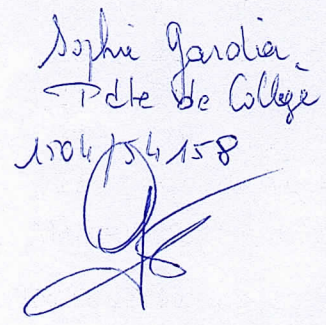 Sophie Gardia
Pdte de Collège
1504/54158